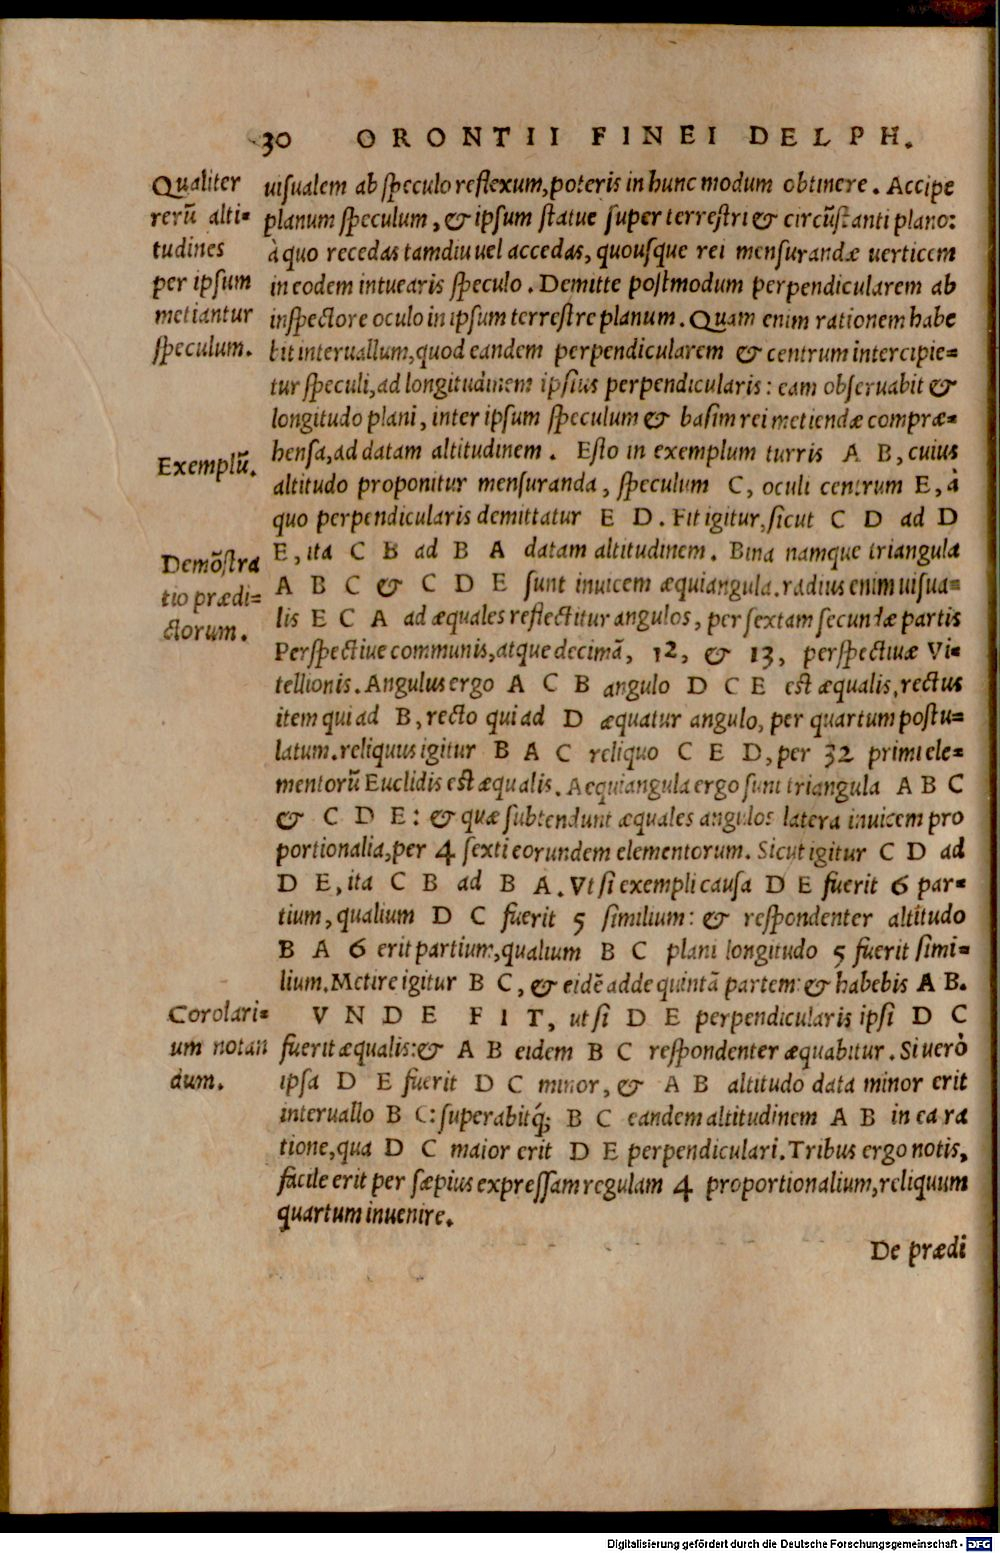 30 ORONTII FINEI DELPH.
Qualiter
rerũ alti=
tudines
per ipsum
metiantur
speculum.
uisualem ab speculo reflexum, poteris in hunc modum obtinere. Accipe
planum speculum, & ipsum statue super terrestri & circũstanti plano:
à quo recedas tamdiu uel accedas, quousque rei mensurandæ uerticem
in eodem intuearis speculo. Demitte postmodum perpendicularem ab
inspectore oculo in ipsum terrestre planum. Quam enim rationem habe
bit interuallum, quod eandem perpendicularem & centrum intercipie=
tur speculi, ad longitudinem ipsius perpendicularis: eam obseruabit &
longitudo plani, inter ipsum speculum & basim rei metiendæ compræ=
Exemplũ.
hensa, ad datam altitudinem. Esto in exemplum turris A B, cuius
altitudo proponitur mensuranda, speculum C, oculi centrum E, à
quo perpendicularis demittatur E D. Fit igitur, sicut C D ad D
E, ita C B ad B A datam altitudinem. Bina namque triangula
Demõstra
tio prædi=
ctorum.
A B C & C D E sunt inuicem æquiangula. radius enim uisua=
lis E C A ad æquales reflectitur angulos, per sextam secundæ partis
Perspectiue communis, atque decimã, 12, & 13, perspectiuæ Vi=
tellionis. Angulus ergo A C B angulo D C E est æqualis, rectus
item qui ad B, recto qui ad D æquatur angulo, per quartum postu=
latum. reliquus igitur B A C reliquo C E D, per 32 primi ele=
mentorũ Euclidis est æqualis. Aequiangula ergo sunt triangula A B C
& C D E: & quæ subtendunt æquales angulos latera inuicem pro
portionalia, per 4 sexti eorundem elementorum. Sicut igitur C D ad
D E, ita C B ad B A. Vt si exempli causa D E fuerit 6 par=
tium, qualium D C fuerit 5 similium: & respondenter altitudo
B A 6 erit partium, qualium B C plani longitudo 5 fuerit simi=
lium. Metire igitur B C, & eidẽ adde quintã partem: & habebis A B.
Corolari=
um notan
dum.
V N D E F I T, ut si D E perpendicularis ipsi D C
fuerit æqualis: & A B eidem B C respondenter æquabitur. Si uerò
ipsa D E fuerit D C minor, & A B altitudo data minor erit
interuallo B C: superabitq́; B C eandem altitudinem A B in ea ra
tione, qua D C maior erit D E perpendiculari. Tribus ergo notis,
facile erit per sæpius expressam regulam 4 proportionalium, reliquum
quartum inuenire.
De prædi
Digitalisierung gefördert durch die Deutsche Forschungsgemeinschaft - DFG